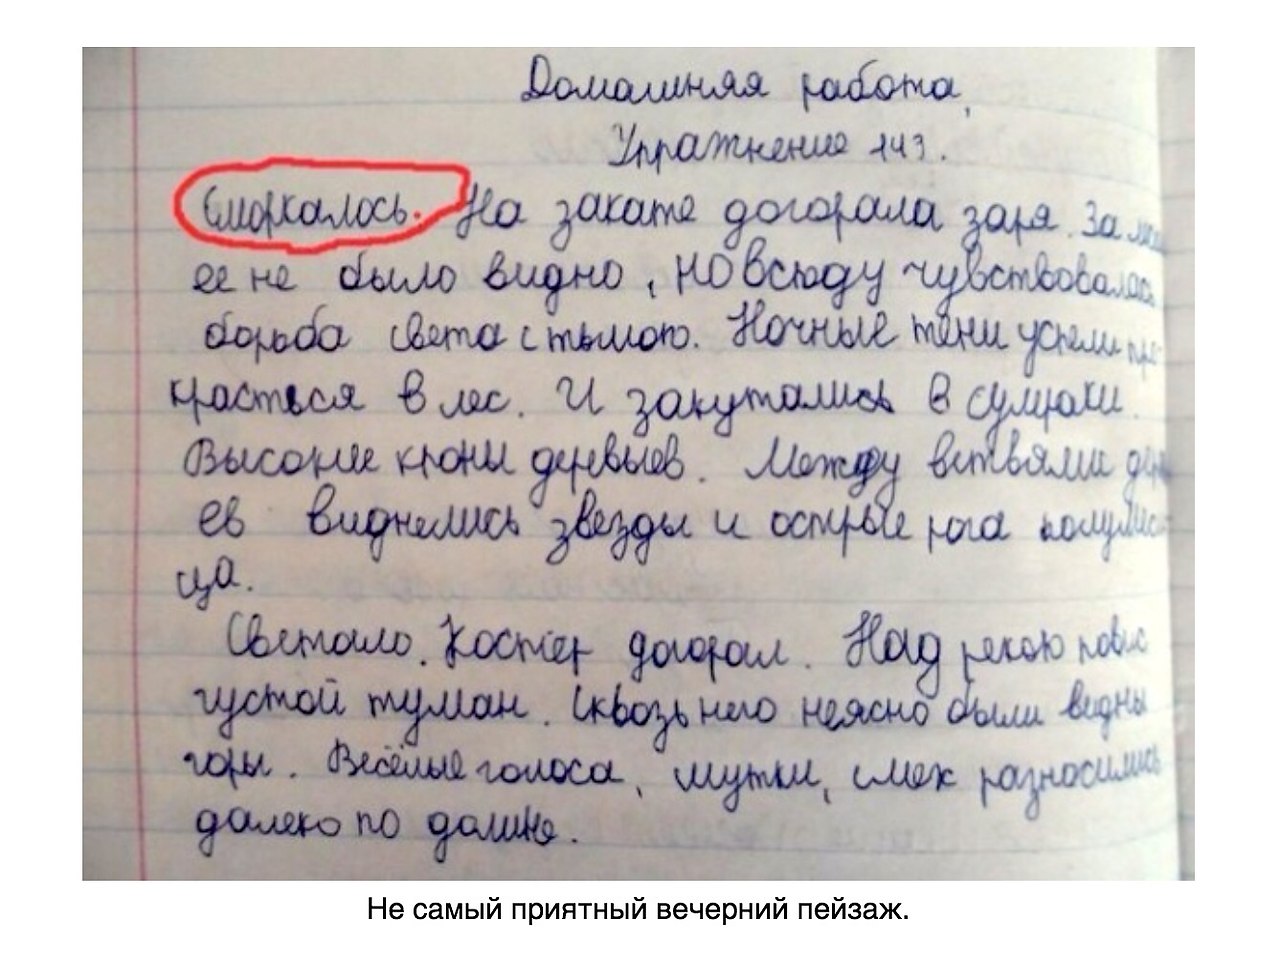 Домашняя работа,
Упражнение 143.
Сморкалось. На закате догорала заря. За
ее не было видно, но всюду чувствовалась
борьба света с тьмою. Ночные тени успели про-
красться в лес. И закутались в сумраки.
Высокие кроны деревьев. Между ветвями дерев
ев виднелись звезды и острые рога полумес-
ца.
Светало. Костёр догорал. Над рекою повис
густой туман. Сквозь него неясно были видны
горы. Весёлые голоса, шутки, смех разносились
далеко по долине.
Не самый приятный вечерний пейзаж.